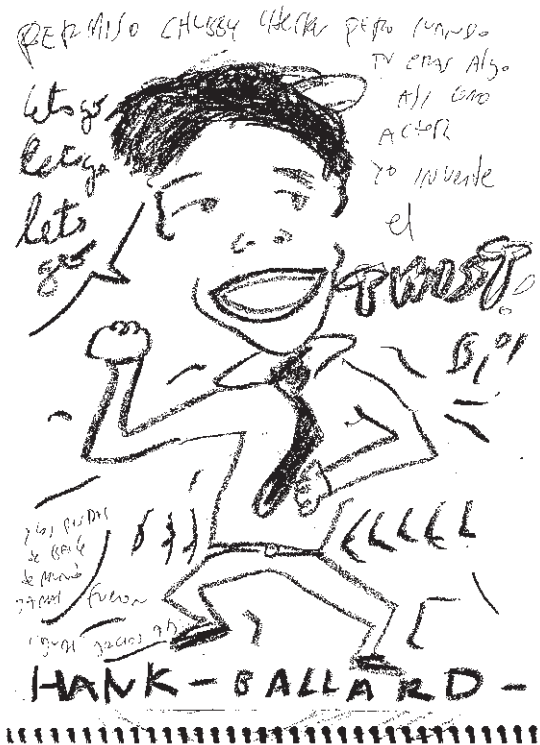 PERMISO CHUBBY CHECKER PERO CUANDO
TU ERAS Algo
ASI COMO
ACTOR
YO INVENTE
el
TWIST.
lets go
lets go
lets
go
y las pistas
de BAILE
de
JAMAS fueron
igual gracias a
HANK - BALLARD -